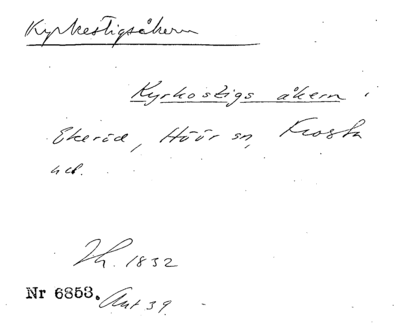 Kyrkestigsåkern
Kyrkostigs åkern i
Ekeröd, Höör sn, Frosta
hd.
Th. 1832
Nr 6853. Ant 39.